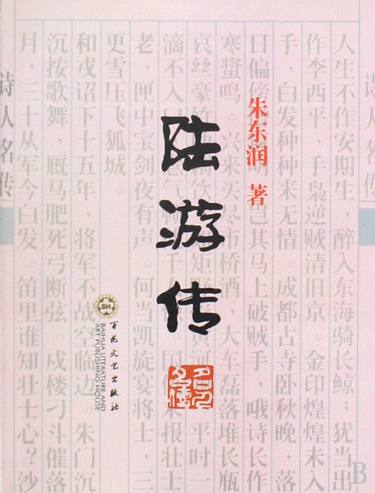 诗人名传
陆游传
朱东润 著
百花文艺出版社
BAIHUA LITERATURE AND
ART PUBLISHING HOUSE
BH
人生不 期生，醉入东海骑长鲸。犹当出
作李西平，手枭逆贼清旧京。金印煌煌未入
手，白发种种来无情。成都古寺卧秋晚，落
日偏傍 岂其马上破贼手，哦诗长作
寒螀鸣。兴来买尽市桥酒，大车磊落堆长瓶
哀丝豪 饮 钜野 河 平时一
滴不入口 气 千 国 报壮士
老，匣中宝剑夜有声。何当凯旋宴将士，三
更雪压飞狐城。
和戎诏下十五年，将军不战空临边。朱门沉
沉按歌舞，厩马肥死弓断弦。戍楼刁斗催落
月，三十从军今白发。笛里谁知壮士心？沙
诗人名传
B